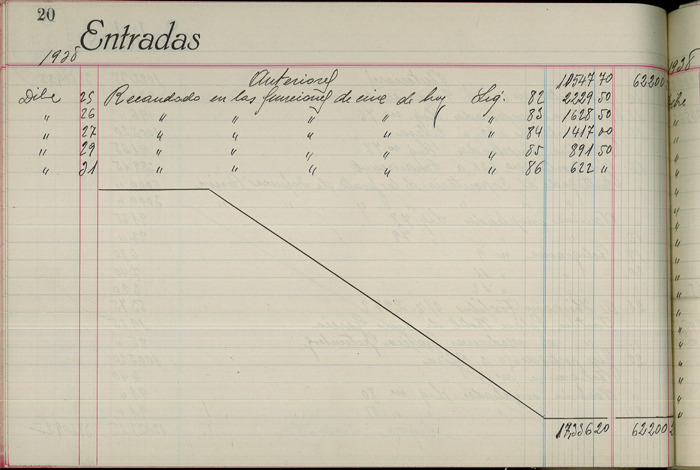 20
Entradas
1928
Anteriores 10547 70 62200
Dibe 25 Recaudado en las funciones de cine de hoy Liq. 82 2229 50
" 26 " " " " ( " 83 1628 50
" 27 " " " " " 84 1417 00
" 29 " " " " " 85 891 50
" 31 " " " " " 86 622 "
17,336 20 62200
1928